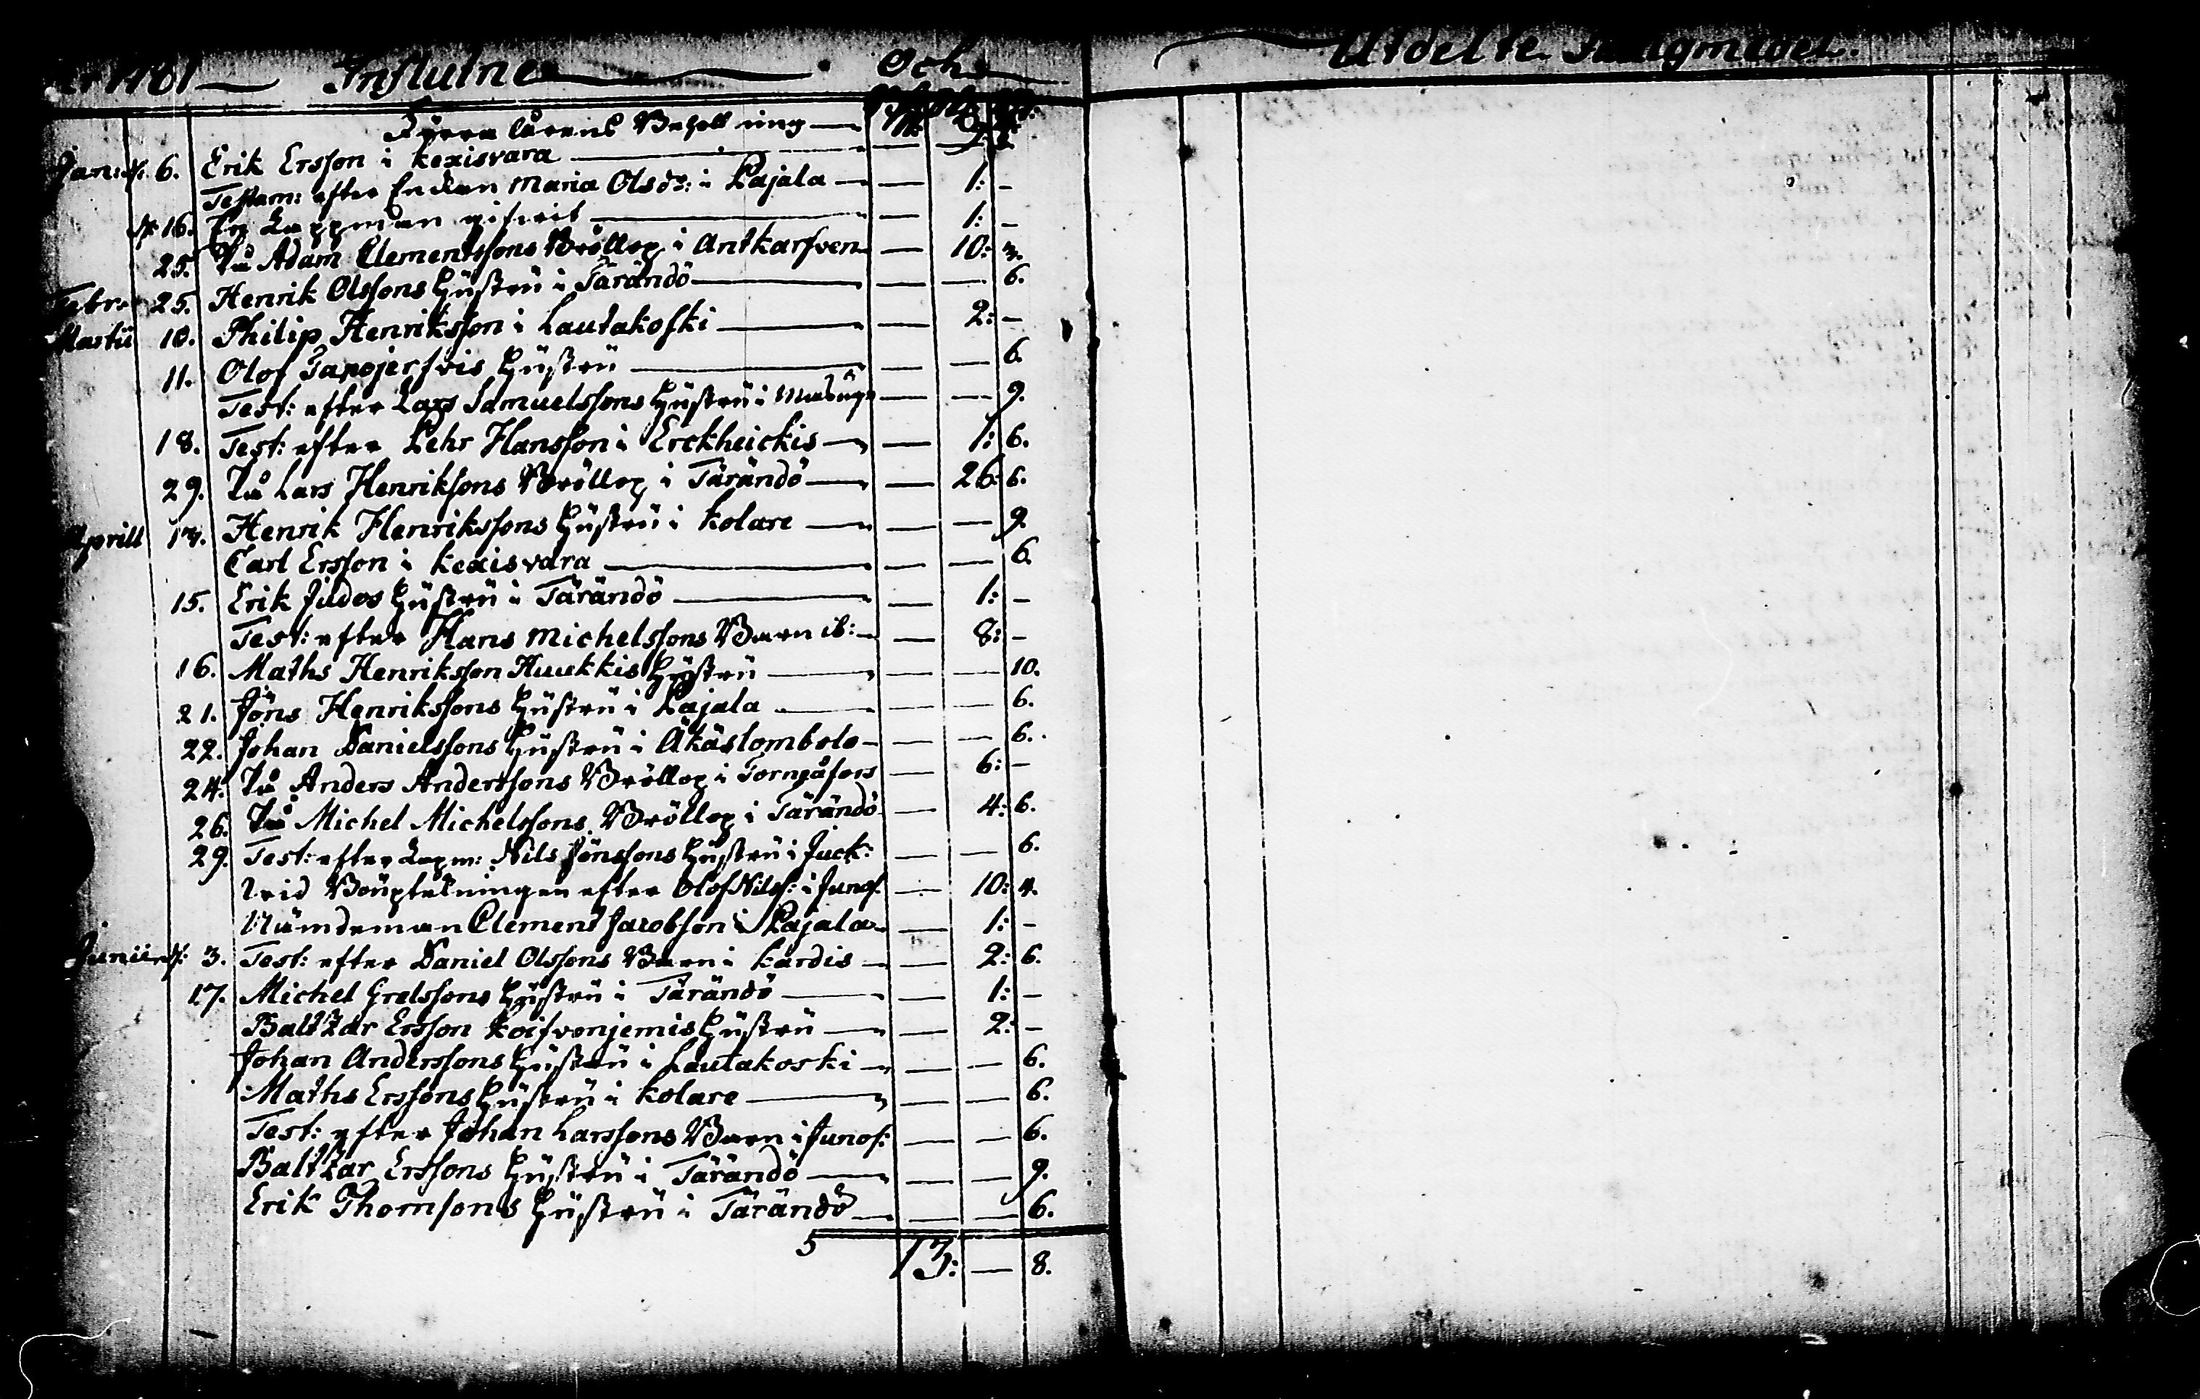 1781 Influtne Och Utdelte
Förra årens Behållning
Janu: d. 6. Erik Ersson i kexisvara
Testam: efter Enkan Maria Olsdr: i Pajala — 1: -
d. 16. En Lappman gifvit — 1: -
25. På Adam Clementssons Bröllop i Antkarfven — 10: 3.
Febr. 25. Henrik Olssons Hustru i Tärändö — — 6.
Martii 10. Philip Henriksson i Lautakoski — 2: -
11. Olof Tapojerfvis Hustru — — 6.
Test: efter Lars Samuelssons Hustru i — — 9.
18. Test: efter Pehr Hansson i Erckheickis — 1: 6.
29. På Lars Henriksons Bröllop i Tärändö — 26: 6.
Aprill 14. Henrik Henrikssons Hustru i kolare — — 9.
Carl Ersson i kexisvara — — 6.
15. Erik Judos Hustru i Tärändö — 1: -
Test: efter Hans Michelssons Barn ib: — 8: -
16. Maths Henriksson Huukkis Hustru — — 10.
21. Jöns Henrikssons Hustru i Pajala — — 6.
22. Johan Danielssons Hustru i Äkäslombolo — — 6.
24. På Anders Anderssons Bröllop i Torneåfors — 6: -
26. På Michel Michelssons Bröllop i Tärändö — 4: 6.
29. Test: efter Lapm: Nils Jönssons Hustru i Juck: — — 6.
Vid Bouptekningen efter Olof Nilss: i Junos. — 10: 4.
Nämdeman Clement Jacobsson i Pajala — 1: -
Junii d. 3. Test: efter Daniel Olssons Barn i kardis — 2: 6.
17. Michel Grelssons Hustru i Tärändö — 1: -
Baltzar Ersson Koifvenjemis Hustru — 2: -
Johan Anderssons Hustru i Lautakoski — — 6.
Maths Erssons Hustru i kolare — — 6.
Test: efter Johan Larssons Barn i Junos: — — 6.
Baltzar Erssons Hustru i Tärändö — — 9.
Erik Thomsons Hustru i Tärändö — — 6.
S 13: — 8.